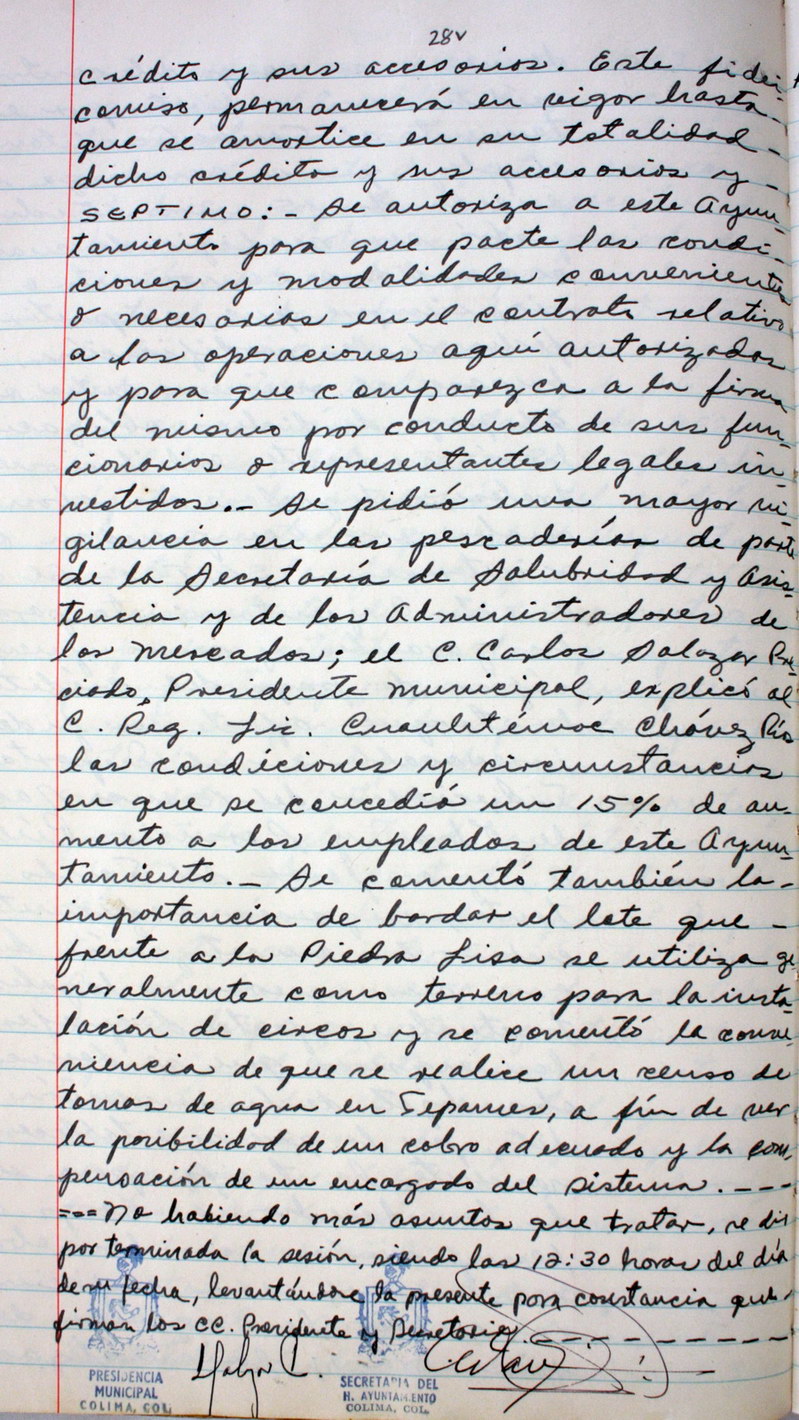 28v
crédito y sus accesorios. Este fidei-
comiso, permanecerá en vigor hasta-
que se amortice en su totalidad-
dicho crédito y sus accesorios y-
SEPTIMO:- Se autoriza a este Ayun-
tamiento para que pacte las condi-
ciones y modalidades convenientes
o necesarias en el contrato relativo
a las operaciones aquí autorizadas
y para que comparezca a la firma
del mismo por conducto de sus fun-
cionarios o representantes legales in-
vestidos.- Se pidió una mayor vi-
gilancia en las pescaderías de parte
de la Secretaría de Salubridad y Asis-
tencia y de los Administradores de
los Mercados; el C. Carlos Salazar Pre-
ciado, Presidente Municipal, explicó al
C. Reg. Lic. Cuauhtémoc Chávez Ríos
las condiciones y circunstancias
en que se concedió un 15% de au-
mento a los empleados de este Ayun-
tamiento.- Se comentó también la-
importancia de bardar el lote que-
frente a la Piedra Lisa se utiliza ge
neralmente como terreno para la insta-
lación de circos y se comentó la conve-
niencia de que se realice un censo de
tomas de agua en Tepames, a fin de ver
la posibilidad de un cobro adecuado y la com-
pensación de un encargado del sistema.----
===No habiendo más asuntos que tratar, se dió
por terminada la sesión, siendo las 12:30 horas del día
de su fecha, levantándose la presente para constancia que-
firman los CC. Presidente y Secretario.----------
PRESIDENCIA
MUNICIPAL
COLIMA, COL.
SECRETARIA DEL
H. AYUNTAMIENTO
COLIMA, COL.